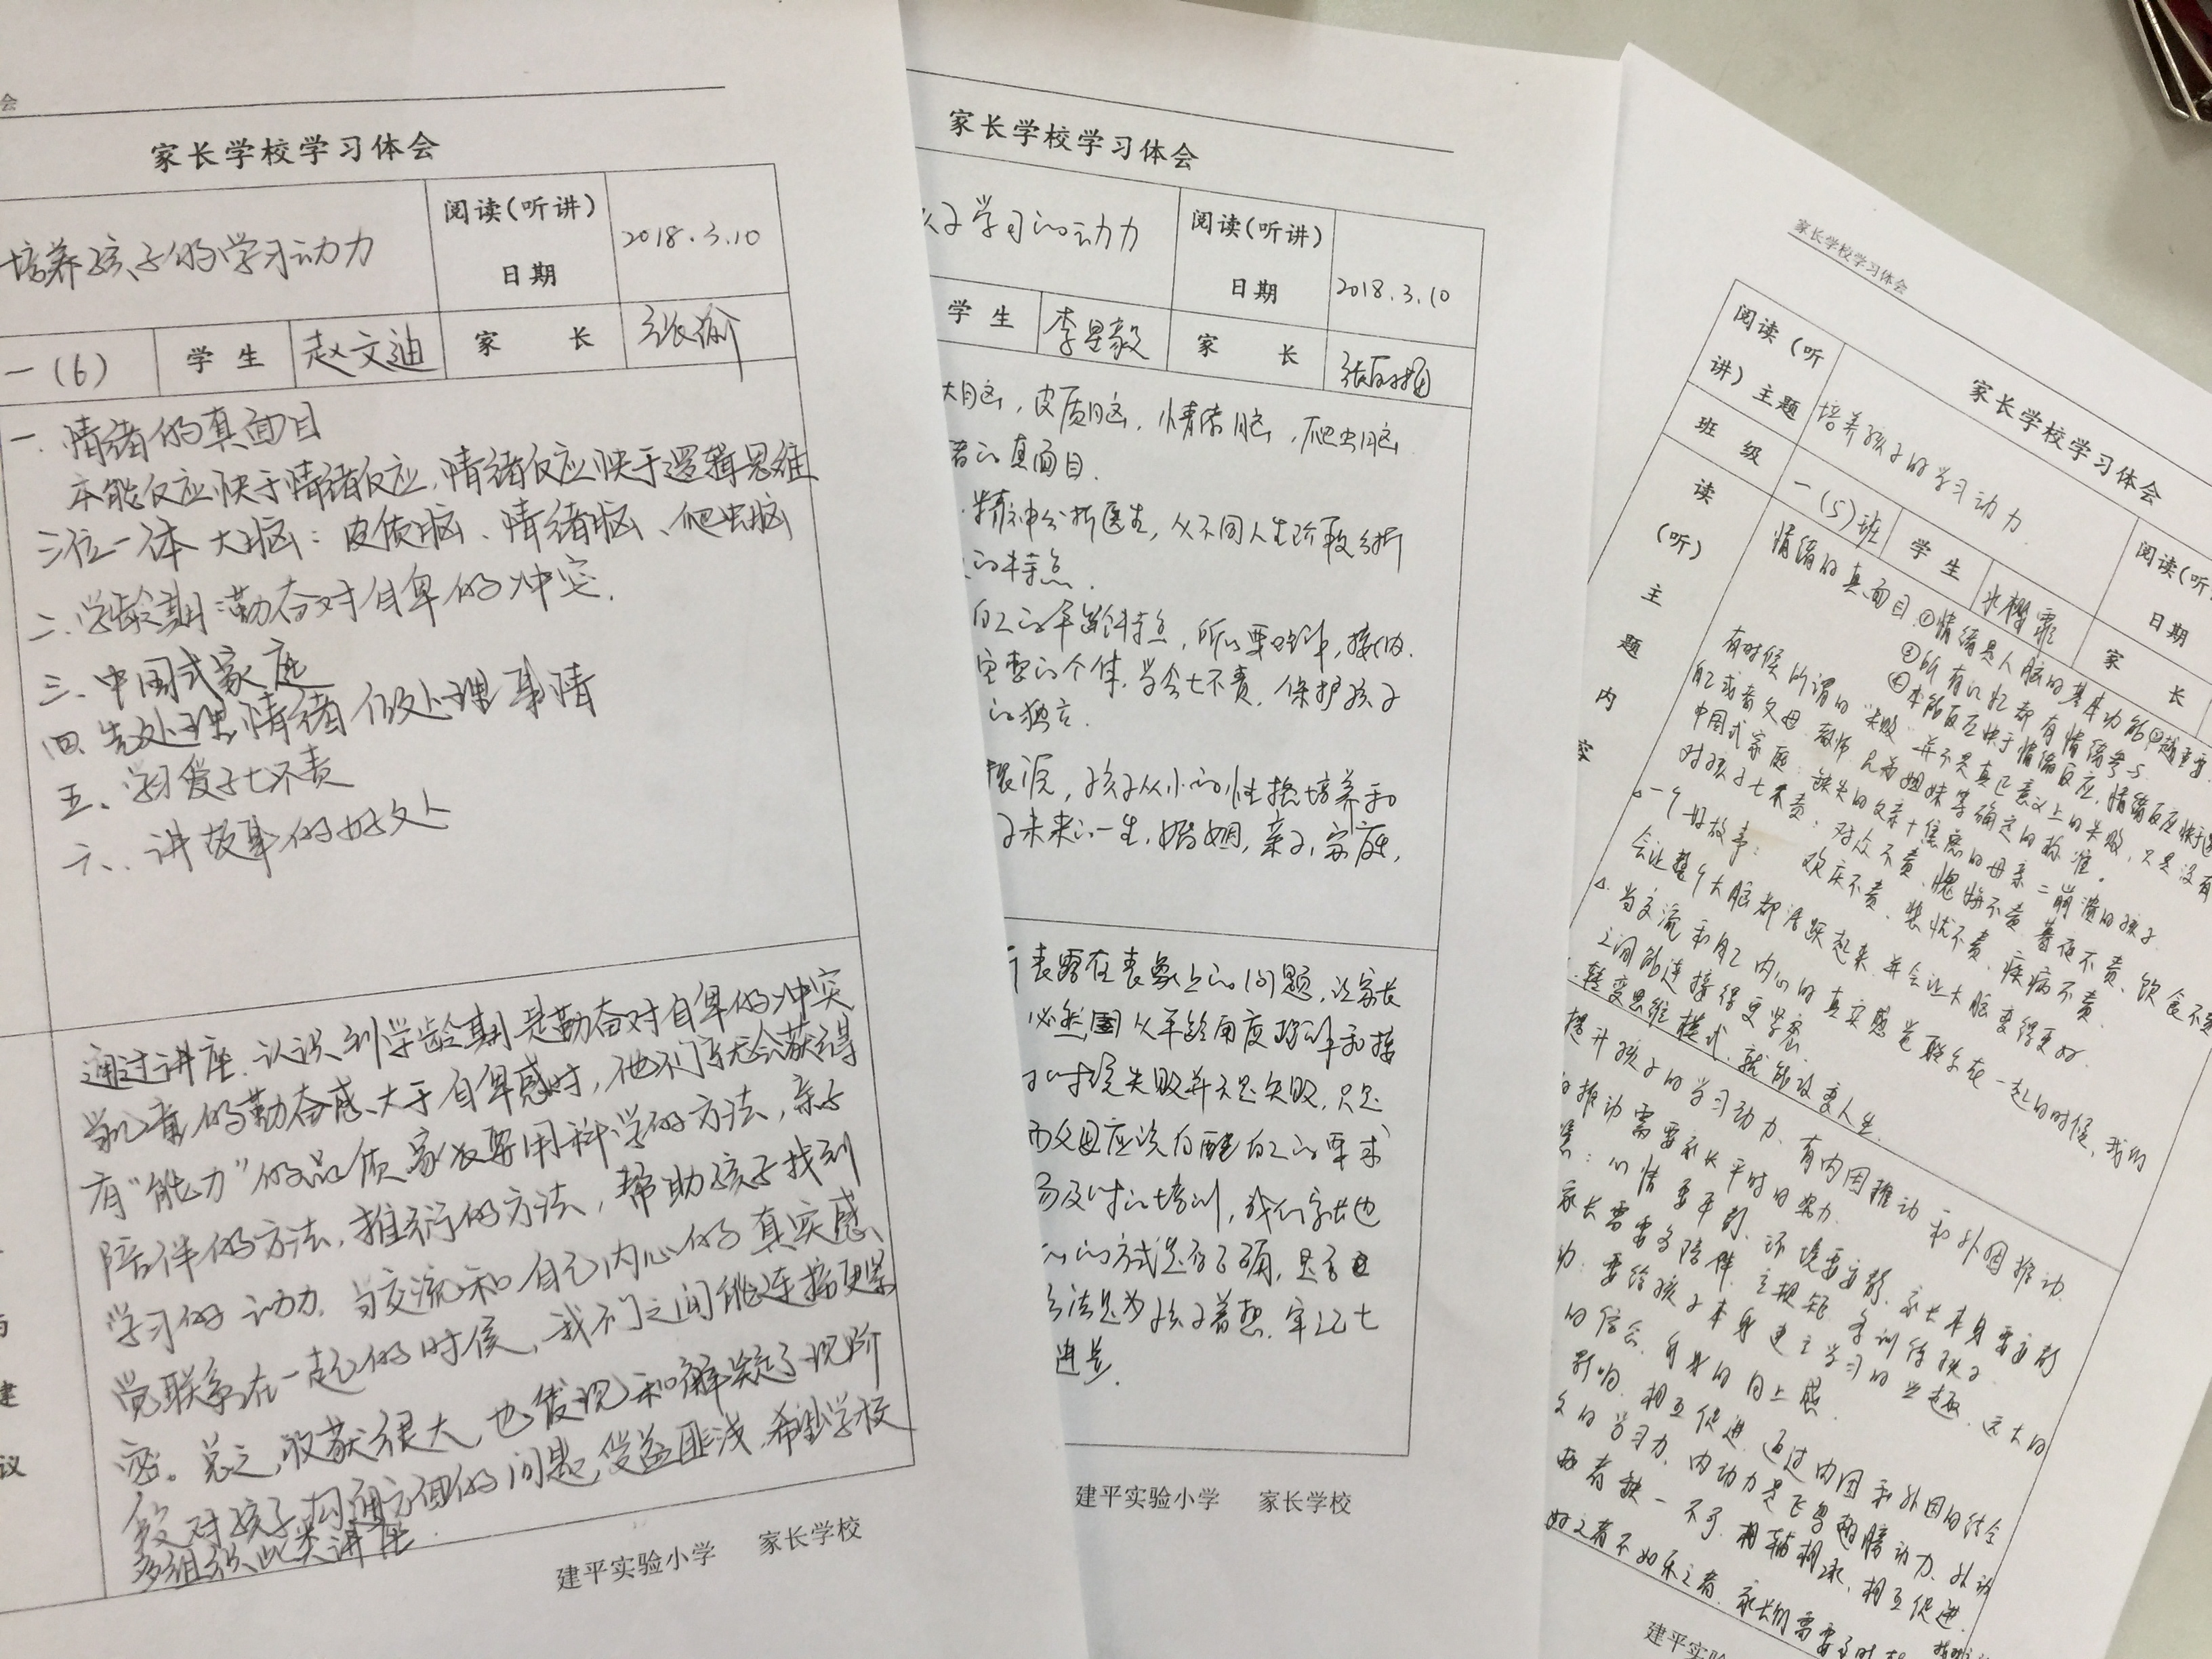 会
家长学校学习体会
培养孩子的学习动力
阅读(听讲)
日期
2018.3.10
一(6)
学 生
赵文迪
家 长
张瑜
一. 情绪的真面目
本能反应快于情绪反应,情绪反应快于逻辑思维
三位一体 大脑: 皮质脑、情绪脑、爬虫脑
二.学龄期:勤奋对自卑的冲突.
三、中国式家庭
四.先处理情绪 后处理事情
五、学习爱子七不责
六、讲故事的好处
通过讲座.认识到学龄期是勤奋对自卑的冲突
当儿童的勤奋感大于自卑感时,他们就会获得
有“能力”的品质.家长要用科学的方法,亲子
陪伴的方法,推衍的方法,帮助孩子找到
学习的动力.当交流和自己内心的真实感
觉联系在一起的时候,我们之间能连接更紧
密。总之,收获很大,也发现和解疑了现阶
段对孩子沟通方面的问题,受益匪浅.希望学校
多组织此类讲座.
建
议
建平实验小学 家长学校
家长学校学习体会
孩子学习的动力
阅读(听讲)
日期
2018.3.10
学 生
李昱毅
家 长
大脑,皮质脑,情绪脑,爬虫脑
绪的真面目.
精神分析医生,从不同人生阶段分析
的特点.
自己的年龄特点,所以要理解,接纳.
完整的个体.学会七不责.保护孩子
的独立.
根源,孩子从小的性格培养和
子未来的一生,婚姻,亲子,家庭,
所表露在表象上的问题,让家长
必然 从年龄角度理解和接
时候失败并不是失败.只是
而父母应该自醒自己的要求
及时的培训,我们家长也
的方式是否正确,是否
方法是为孩子着想.牢记七
进步.
建平实验小学 家长学校
家长学校学习体会
家长学校学习体会
阅读(听
讲)主题
培养孩子的学习动力
阅读(听
日期
班 级
一(5)班
学 生
家 长
读
(听)
主
题
内
容
情绪的真面目①情绪是人脑的基本功能
③所有记忆都有情绪参与
④本能反应快于情绪反应,情绪反应快于逻
有时候所谓的“失败”并不是真正意义上的失败,只是没有
自己或者父母、教师、兄弟姐妹等确定的标准。
中国式家庭:缺失的父亲+焦虑的母亲=崩溃的孩子
对孩子七不责:对众不责、愧悔不责、暮夜不责、饮食不责
欢庆不责、悲忧不责、疾病不责.
△一个好故事:
会让整个大脑都活跃起来.并会让大脑变得更好
△.当交流和自己内心的真实感觉联系在一起的时候,我们
之间能连接得更紧密.
转变思维模式,就能改变人生.
提升孩子的学习动力,有内因推动和外因推动.
的推动需要家长平时的努力.
心情要平静,环境要安静,家长本身要安静
家长需要多陪伴.立规矩,多训练孩子.
要给孩子本身建立学习的兴趣.远大的
的信念.自身的向上感.
影响.相互促进.通过内因和外因的结合
的学习力.内动力是飞鸟翅膀动力.外动
两者缺一不可.相辅相承,相互促进.
好之者不如乐之者.家长们需要
建平实验